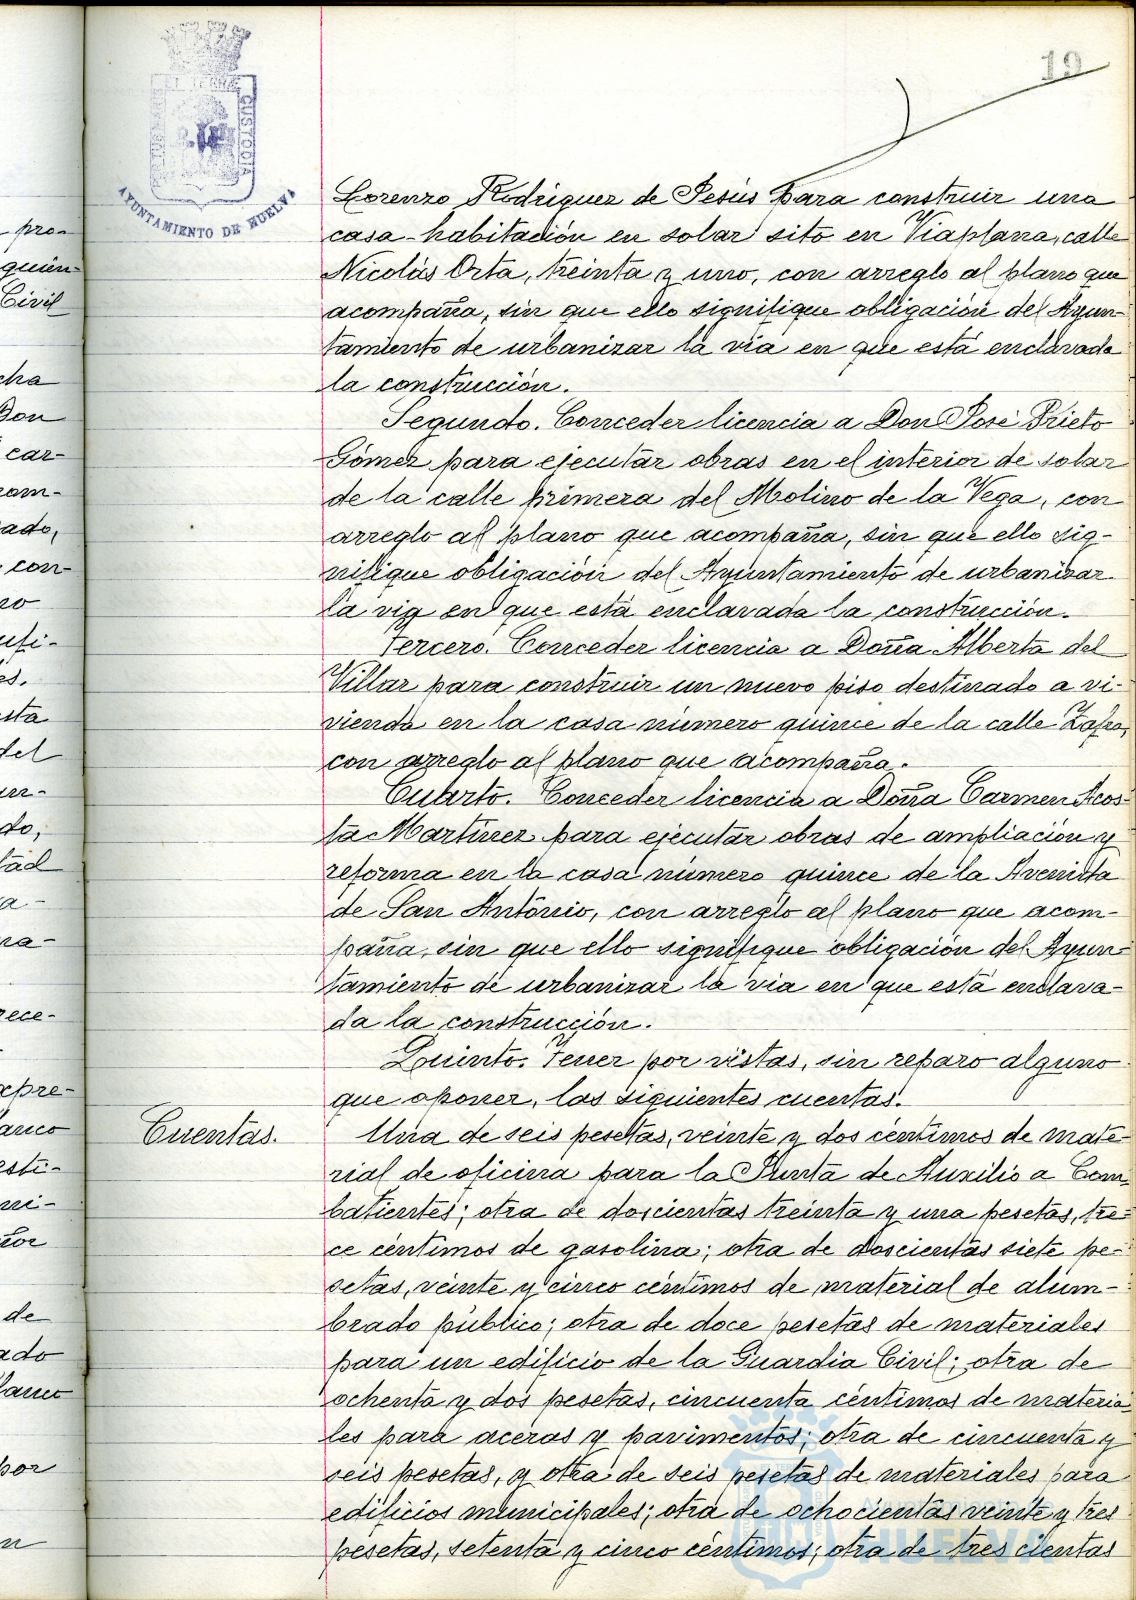 19
AYUNTAMIENTO DE HUELVA
CUSTODIA
Lorenzo Rodríguez de Jesús para construir una
casa-habitación en solar sito en Viaplana, calle
Nicolás Orta, treinta y uno, con arreglo al plano que
acompaña, sin que ello signifique obligación del Ayun-
tamiento de urbanizar la vía en que está enclavada
la construcción.
Segundo. Conceder licencia a Don José Prieto
Gómez para ejecutar obras en el interior de solar
de la calle primera del Molino de la Vega, con
arreglo al plano que acompaña, sin que ello sig-
nifique obligación del Ayuntamiento de urbanizar
la vía en que está enclavada la construcción.
Tercero. Conceder licencia a Doña Alberta del
Villar para construir un nuevo piso destinado a vi-
vienda en la casa número quince de la calle Zafra,
con arreglo al plano que acompaña.
Cuarto. Conceder licencia a Doña Carmen Acos-
ta Martínez para ejecutar obras de ampliación y
reforma en la casa número quince de la Avenida
de San Antonio, con arreglo al plano que acom-
paña, sin que ello signifique obligación del Ayun-
tamiento de urbanizar la vía en que está enclava-
da la construcción.
Quinto. Tener por vistas, sin reparo alguno
que oponer, las siguientes cuentas.
Cuentas.
Una de seis pesetas, veinte y dos céntimos de mate-
rial de oficina para la Junta de Auxilio a Com-
batientes; otra de doscientas treinta y una pesetas, tre-
ce céntimos de gasolina; otra de doscientas siete pe-
setas, veinte y cinco céntimos de material de alum-
brado público; otra de doce pesetas de materiales
para un edificio de la Guardia Civil; otra de
ochenta y dos pesetas, cincuenta céntimos de materia-
les para aceras y pavimentos; otra de cincuenta y
seis pesetas, y otra de seis pesetas de materiales para
edificios municipales; otra de ochocientas veinte y tres
pesetas, setenta y cinco céntimos; otra de tres cientas
HUELVA
pro-
quien-
Civil
cha
Don
car-
com-
ado,
con-
no
ufi-
es.
sta
del
un-
do,
tad
a-
na-
rece-
xpre-
anco
esti-
ni-
ñor
de
ado
lanco
por
n